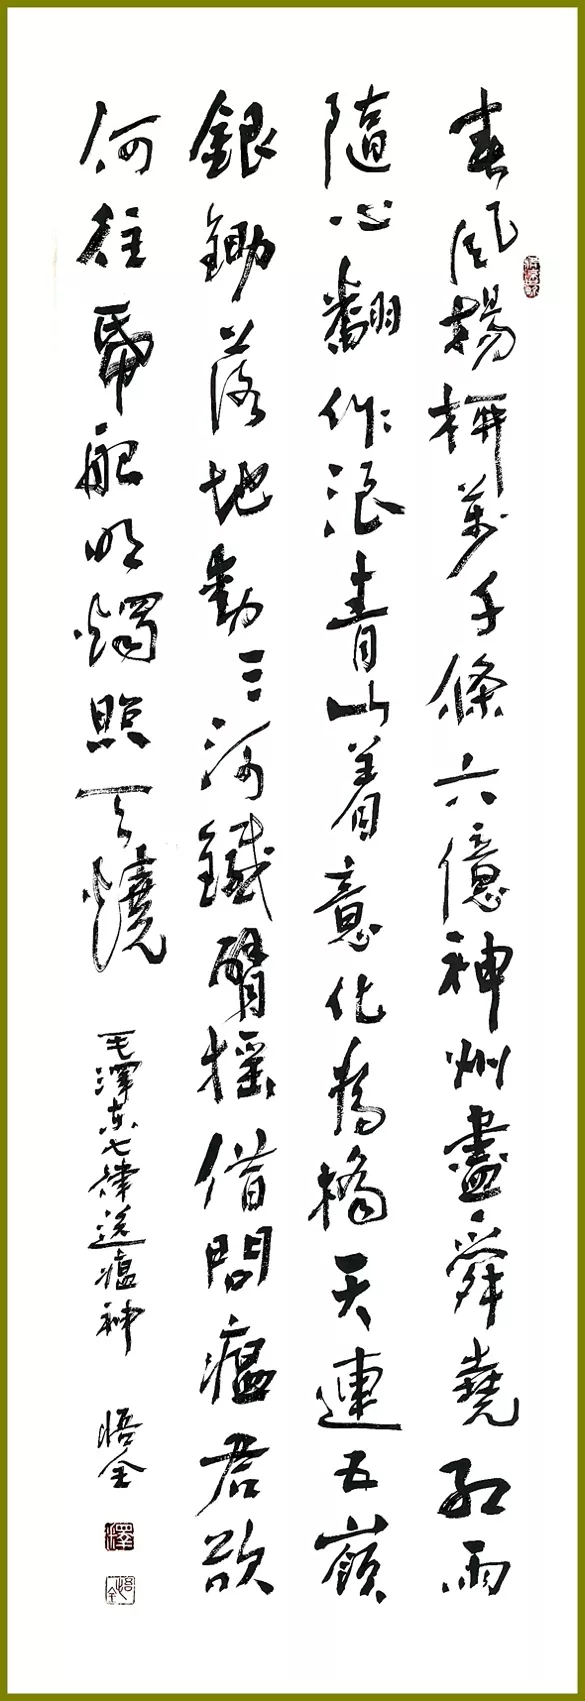 春風楊柳萬千條六億神州盡舜堯紅雨
隨心翻作浪青山着意化為橋天連五嶺
銀鋤落地動三河鐵臂搖借問瘟君欲
何往帋船明燭照天燒
毛澤东七律送瘟神
悟全